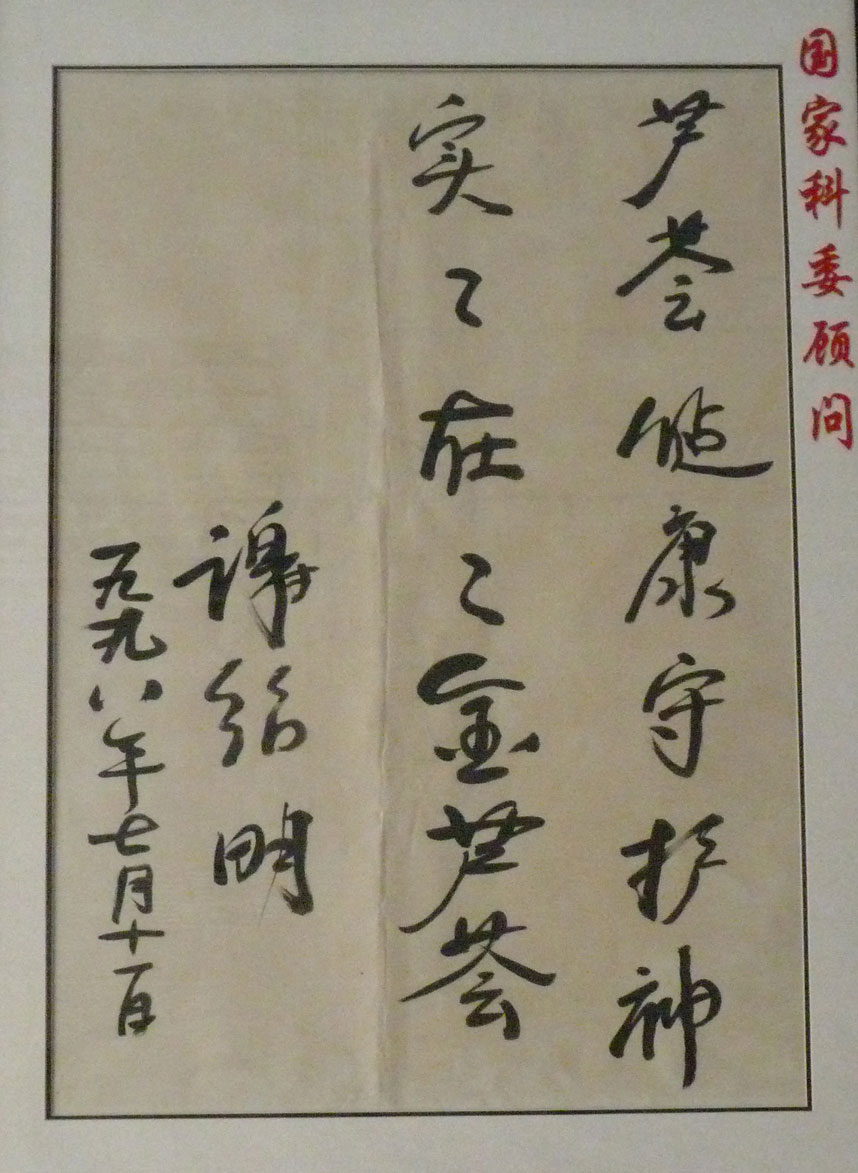 国家科委顾问
芦荟健康守护神
实々在々金芦荟
谢绍明
一九九八年七月十一日